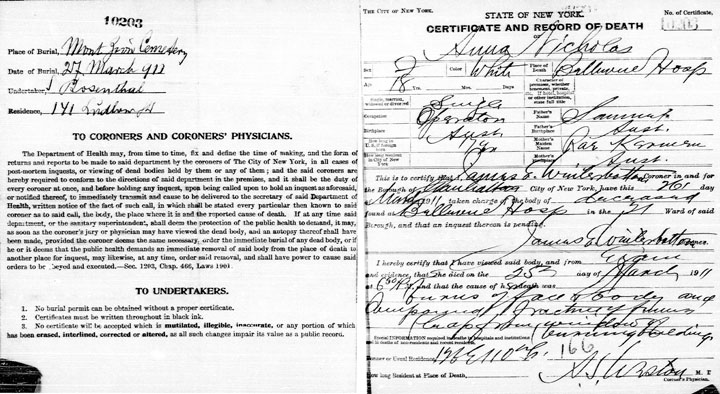 10203
Place of Burial, Mont Zion Cemetery
Date of Burial, 27 March 911
Undertaker, Rosenthal
Residence, 141 Ludlow St
TO CORONERS AND CORONERS' PHYSICIANS.
The Department of Health may, from time to time, fix and define the time of making, and the form of
returns and reports to be made to said department by the coroners of The City of New York, in all cases of
post-mortem inquests, or viewing of dead bodies held by them or any of them; and the said coroners are
hereby required to conform to the directions of said department in the premises, and it shall be the duty of
every coroner at once, and before holding any inquest, upon being called upon to hold an inquest as aforesaid,
or notified thereof, to immediately transmit and cause to be delivered to the secretary of said Department of
Health, written notice of the fact of such call, in which shall be stated every particular then known to said
coroner as to said call, the body, the place where it is and the reported cause of death. If at any time said
department, or the sanitary superintendent, shall deem the protection of the public health to demand it, it may,
as soon as the coroner's jury or physician may have viewed the dead body, and an autopsy thereof shall have
been made, provided the coroner deems the same necessary, order the immediate burial of any dead body, or if
he or it deems that the public health demands an immediate removal of said body from the place of death to
another place for inquest, may likewise, at any time, order said removal, and shall have power to cause said
orders to be obeyed and executed.—Sec. 1203, Chap. 466, Laws 1901.
TO UNDERTAKERS.
1. No burial permit can be obtained without a proper certificate.
2. Certificates must be written throughout in black ink.
3. No certificate will be accepted which is mutilated, illegible, inaccurate, or any portion of which
has been erased, interlined, corrected or altered, as all such changes impair its value as a public record.
THE CITY OF NEW YORK.
STATE OF NEW YORK.
No. of Certificate,
CERTIFICATE AND RECORD OF DEATH
OF
Anna Nicholas
Sex F Color White Place of Death Bellevue Hosp
Age 18 Yrs. Mos. Days.
Single, married, widowed or divorced Single
Occupation Operator Father's Name Samuel
Birthplace Aust. Father's Birthplace Aust.
How long in U. S. if foreign born Mother's Maiden Name
How long resident in City of New York Mother's Birthplace Aust.
This is certify that I, Coroner in and for
the Borough of Manhattan City of New York, have this 26 day
March 1911 taken charge of the body of deceased
found at Bellevue Hosp in the Ward of said
Borough, and that an inquest thereon is pending.
Coroner.
I hereby certify that I have viewed said body, and from Exam
and evidence, that she died on the 25 day of March 1911
at and that the cause of her death was
burns of face & body and
Compound fracture of
burning building
Special INFORMATION required in deaths in hospitals and institutions
and in deaths of non-residents and recent residents.
Former or Usual Residence, 166
How long Resident at Place of Death, M. D.
Coroner's Physician.